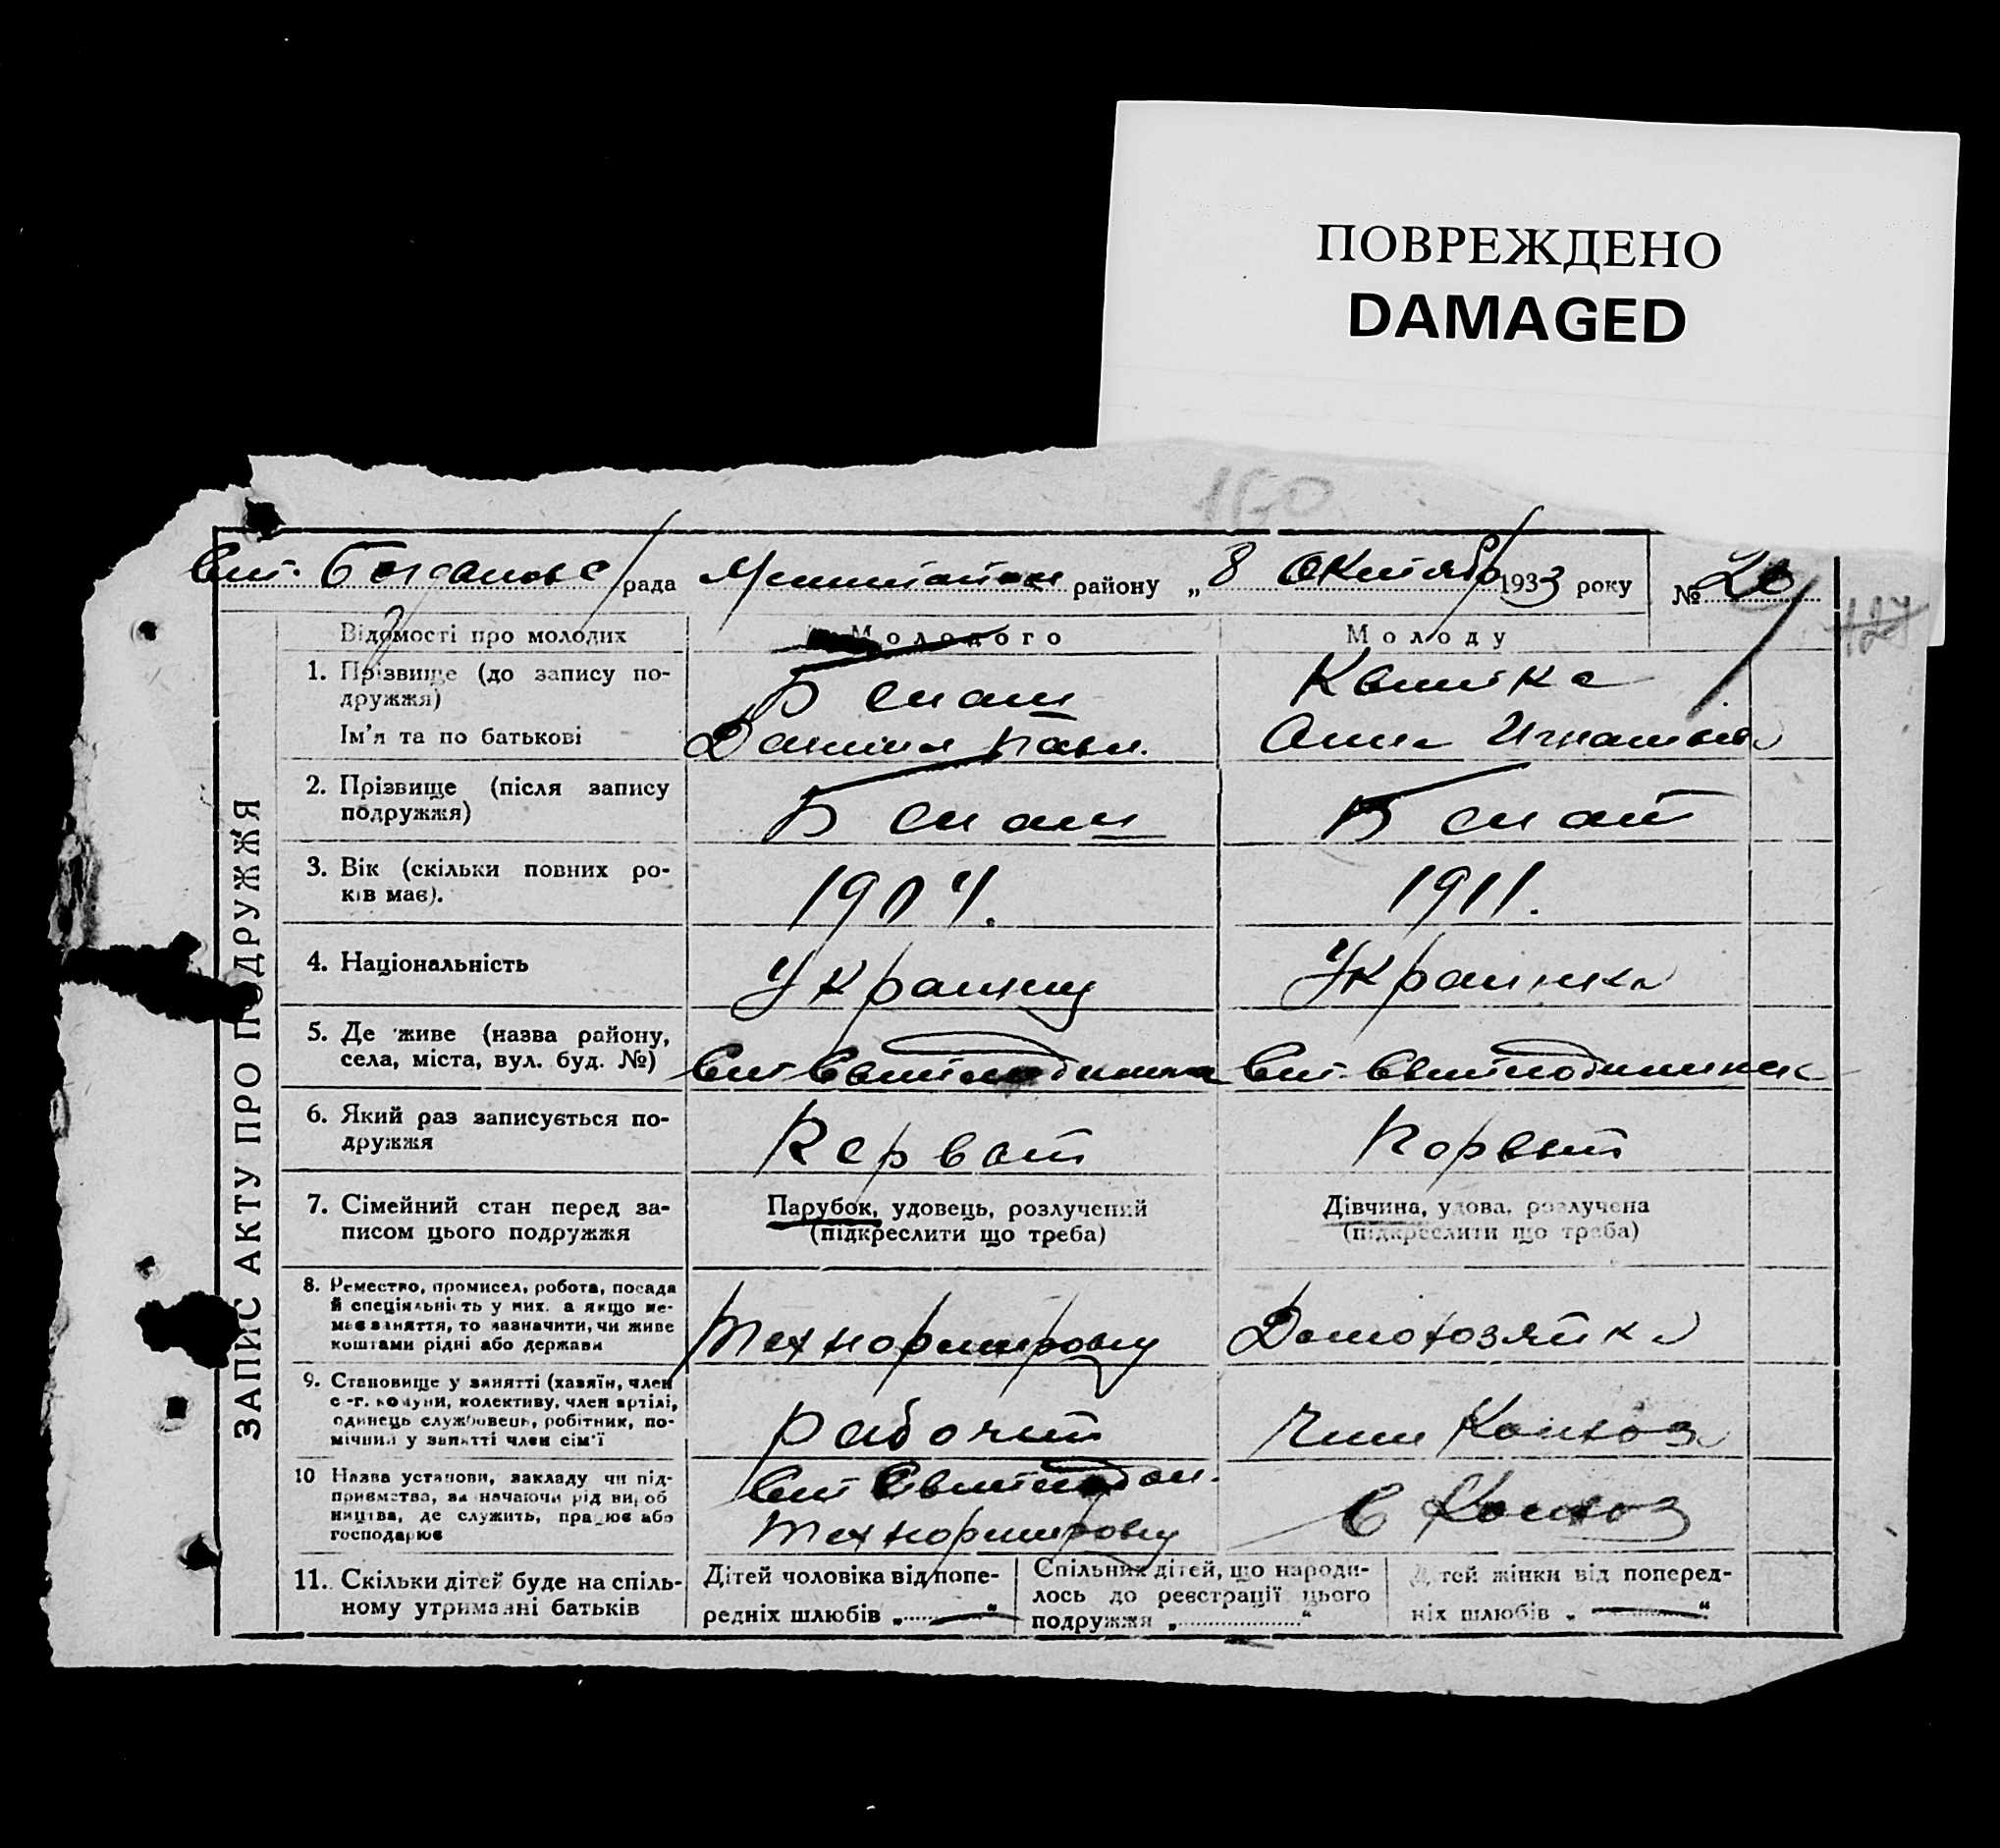 ПОВРЕЖДЕНО
DAMAGED
160
рада району „ 8 Октября 1933 року № 20
127
ЗАПИС АКТУ ПРО ПОДРУЖЖЯ
Відомості про молодих Молодого Молоду
1. Прізвище (до запису по-
дружжя)
Квитка
Ім'я та по батькові
Павл. Анна Игнатьев
2. Прізвище (після запису
подружжя)
3. Вік (скільки повних ро-
ків має).
1904. 1911.
4. Національність
Украинец Украинка
5. Де живе (назва району,
села, міста, вул. буд. №)
6. Який раз записується по-
дружжя
Первый Первый
7. Сімейний стан перед за-
писом цього подружжя
Парубок, удовець, розлучений
(підкреслити що треба)
Дівчина, удова, розлучена
(підкреслити що треба)
8. Ремество, промисел, робота, посада
й спеціяльність у них, а якщо не-
має заняття, то зазначити, чи живе
коштами рідні або держави
Домохозяйка
9. Становище у занятті (хазяїн, член
с.-г. комуни, колективу, член артілі,
одинець службовець, робітник, по-
мічний у занятті член сім'ї
Рабочий Член Колхоза
10 Назва установи, закладу чи під-
приємства, зазначаючи рід вироб
ництва, де служить, працює або
господарює
В Колхоз
11. Скільки дітей буде на спіль-
ному утриманні батьків
Дітей чоловіка від попе-
редніх шлюбів „ — “
Спільних дітей, що народи-
лось до реєстрації цього
подружжя „ “
Дітей жінки від поперед-
ніх шлюбів „ — “